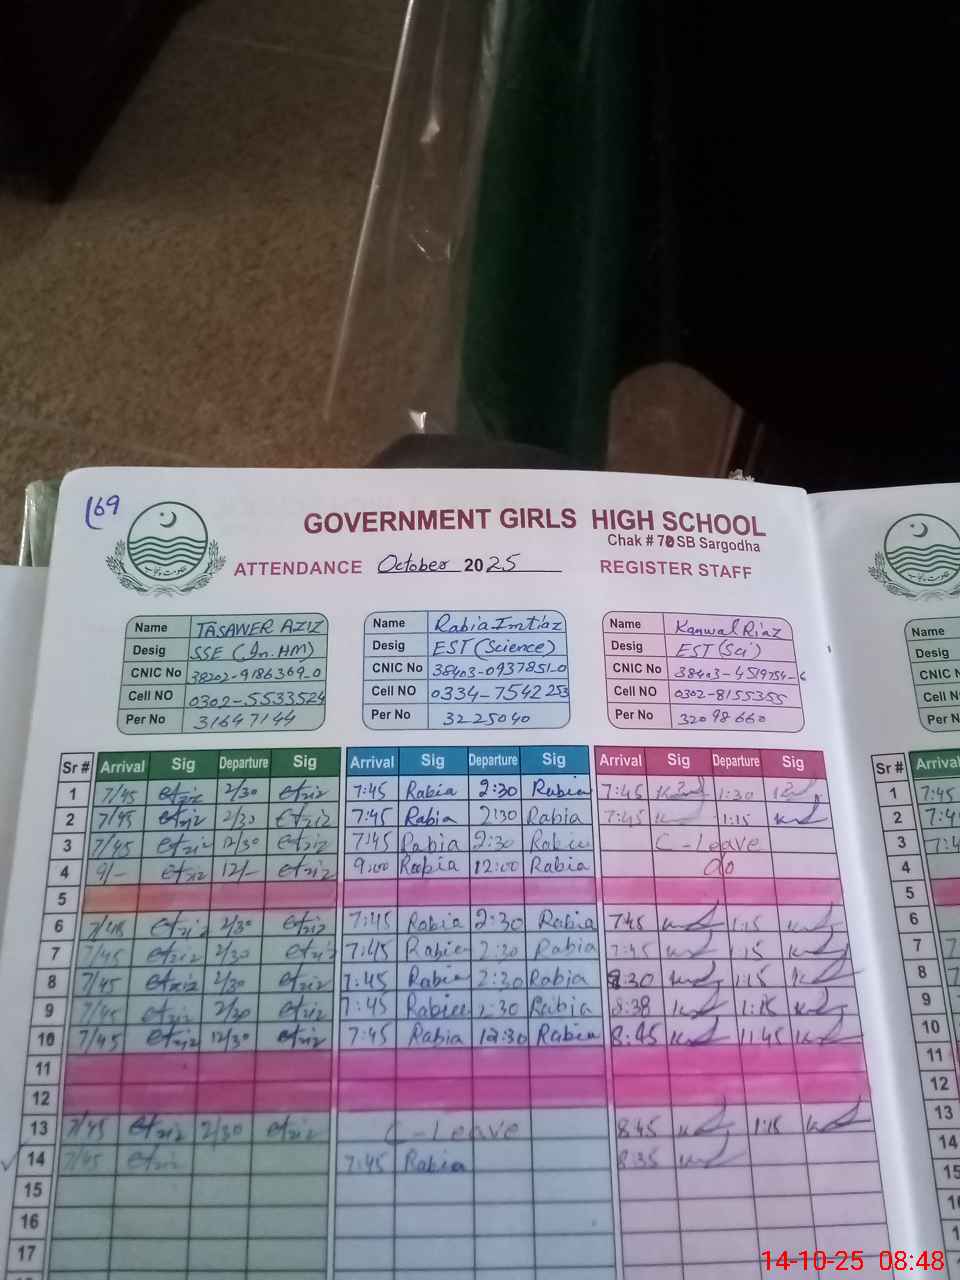 169
GOVERNMENT GIRLS HIGH SCHOOL
Chak # 70 SB Sargodha
ATTENDANCE October 2025 REGISTER STAFF
Name TASAWER AZIZ Name Rabia Imtiaz Name Kanwal Riaz Name
Desig SSE (In.HM) Desig EST (Science) Desig EST (Sci) Desig
CNIC No 38202-9186369-0 CNIC No 38403-0937851-0 CNIC No 38403-4519754-6 CNIC N
Cell NO 0302-5533524 Cell NO 0334-7542253 Cell NO 0302-8155355 Cell N
Per No 31647144 Per No 3225040 Per No 32098660 Per N
Sr # Arrival Sig Departure Sig Arrival Sig Departure Sig Arrival Sig Departure Sig Sr # Arrival
1 7/45 2/30 7:45 Rabia 2:30 Rabia 7:45 1:30 1 7:45
2 7/45 2/30 7:45 Rabia 2:30 Rabia 7:45 1:15 2 7:4
3 7/45 12/30 7:45 Rabia 2:30 Rabia C-Leave 3 7:4
4 9/- 12/- 9:00 Rabia 12:00 Rabia do 4
5 5
6 7/45 2/30 7:45 Rabia 2:30 Rabia 7:45 1:15 6
7 7/45 2/30 7:45 Rabia 2:30 Rabia 7:45 1:15 7
8 7/45 2/30 7:45 Rabia 2:30 Rabia 8:30 1:15 8
9 7/45 2/30 7:45 Rabia 2:30 Rabia 8:38 1:15 9
10 7/45 12/30 7:45 Rabia 12:30 Rabia 8:45 11:45 10
11 11
12 12
13 7/45 2/30 C-Leave 8:45 1:15 13
14 7/45 7:45 Rabia 8:35 14
15 15
16
17
14-10-25 08:48